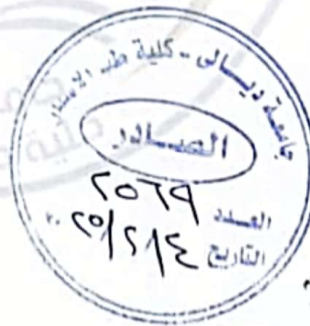 جامعة ديـالى - كلية طب الاسنان
الصـادر
العـدد ٢٥٦٩
التاريخ ٢٥/٢/٤